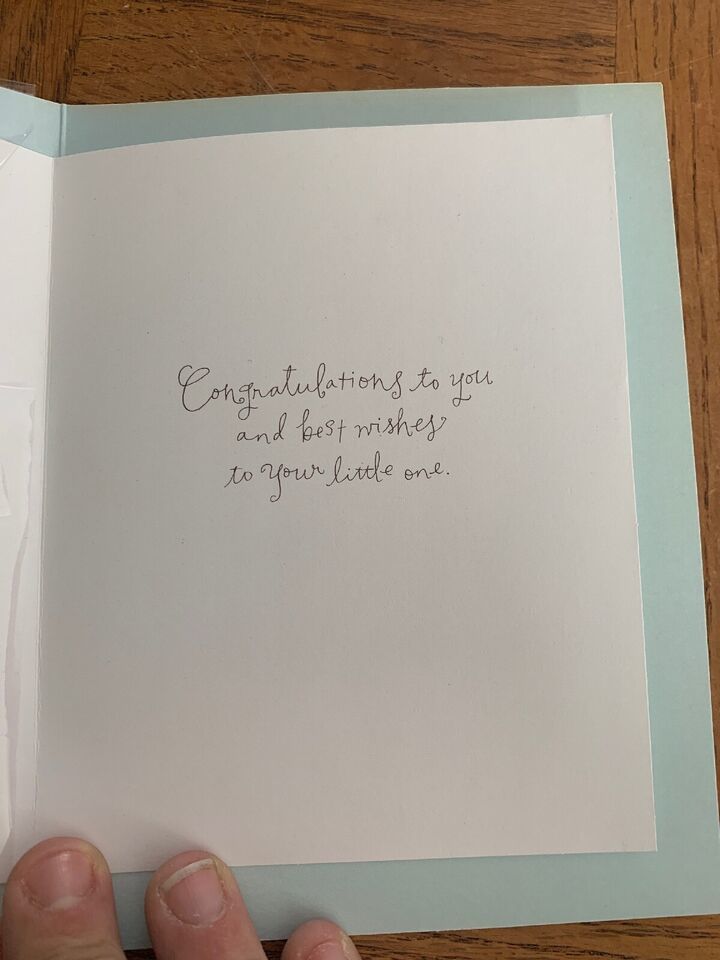 Congratulations to you
and best wishes
to your little one.